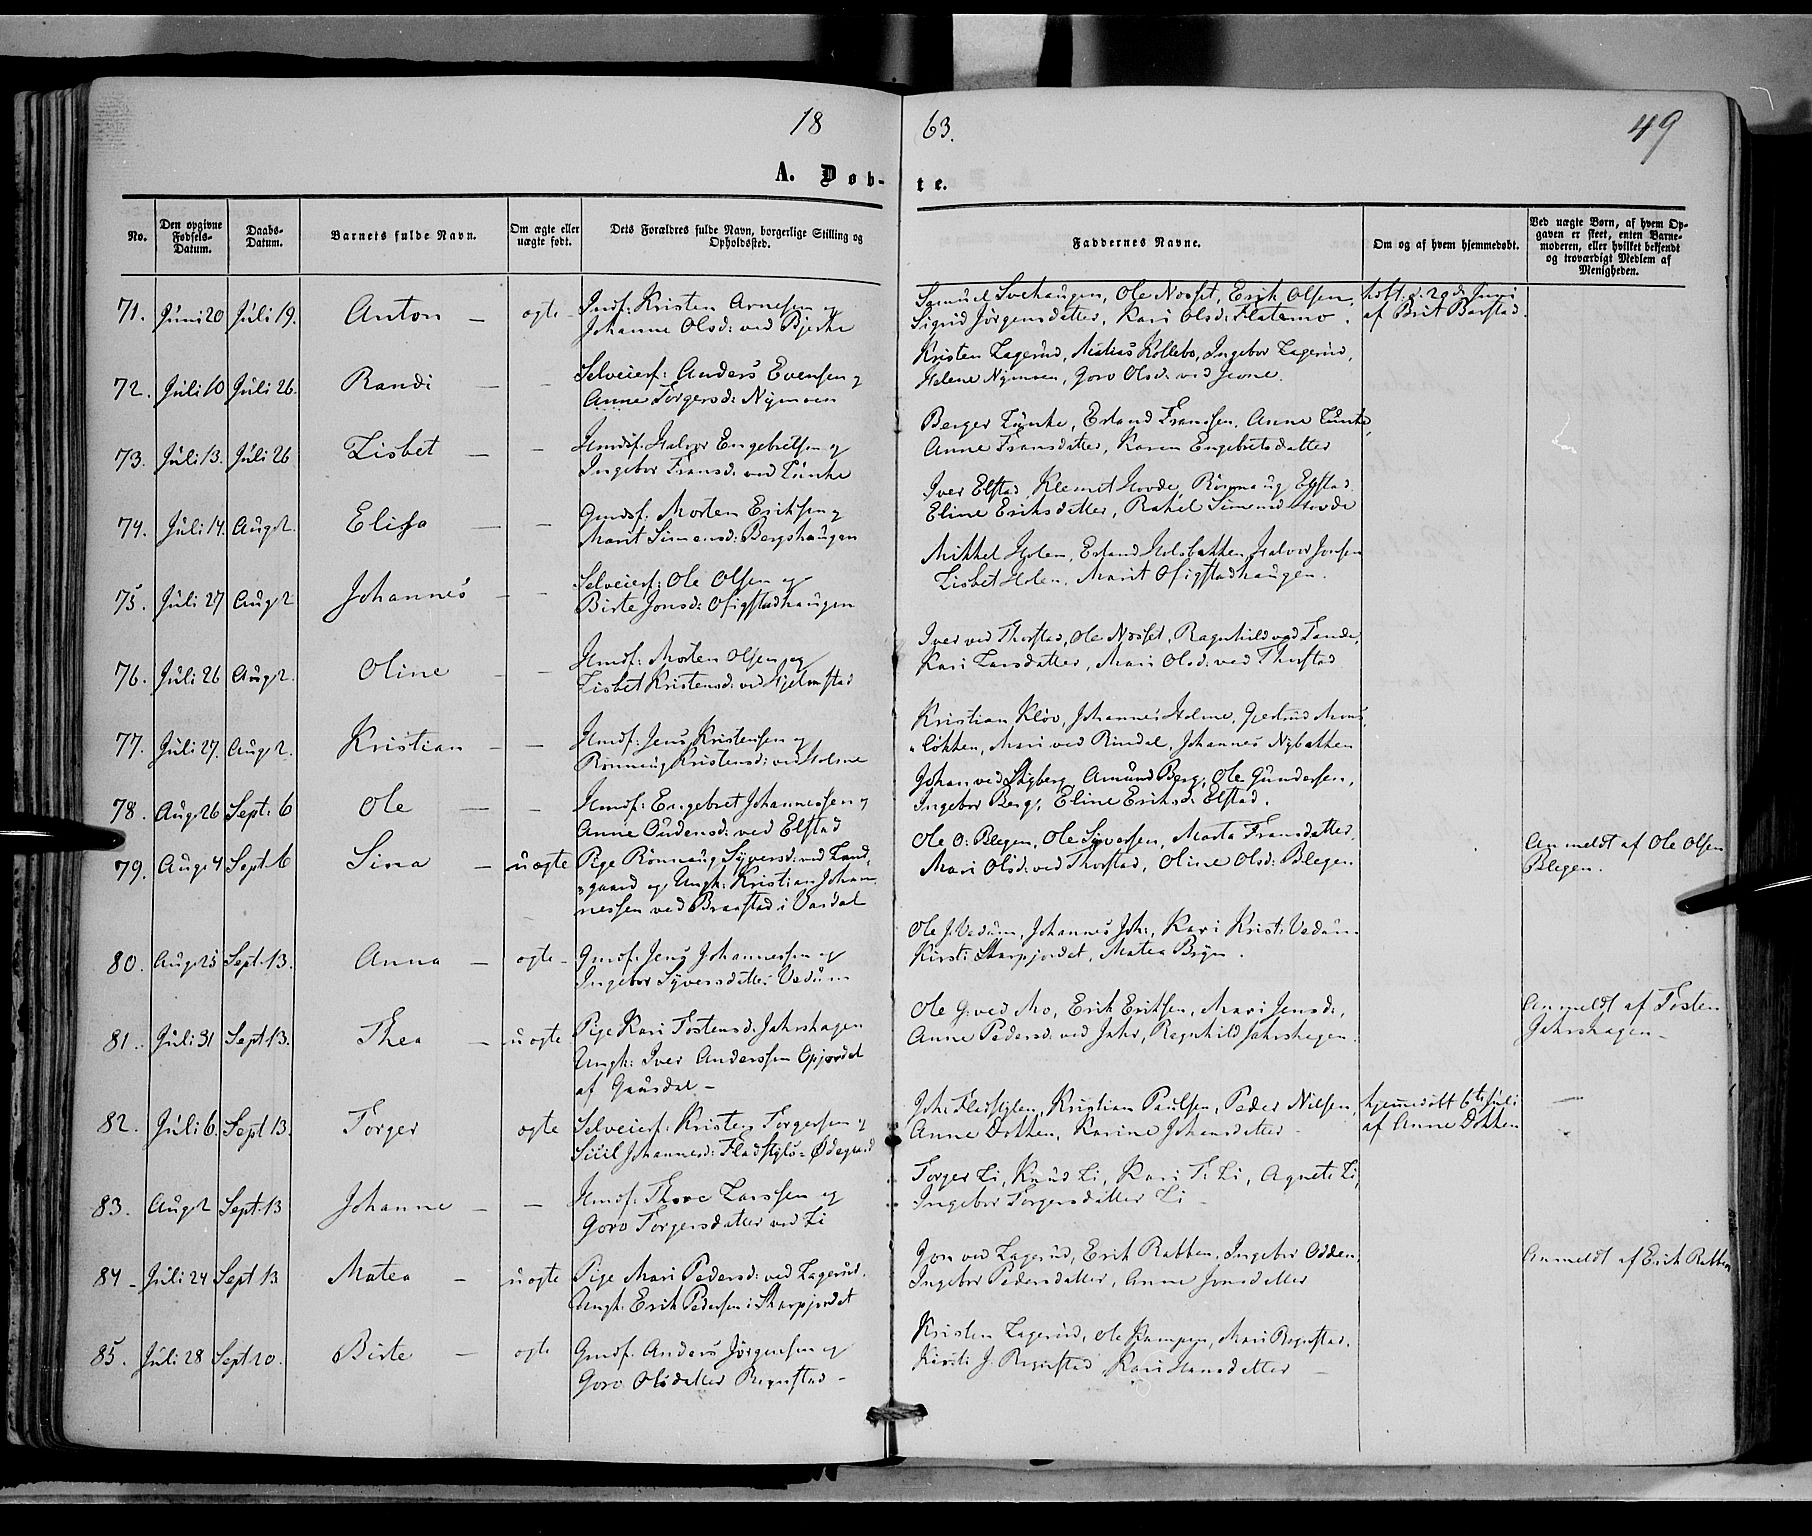 18 63. 49
A. Døb- te.
No.
Den opgivne Fødsels-Datum.
Daabs-Datum.
Barnets fulde Navn.
Om ægte eller uægte født.
Dets Forældres fulde Navn, borgerlige Stilling og Opholdssted.
Faddernes Navne.
Om og af hvem hjemmedøbt.
Ved uægte Børn, af hvem Opgaven er skeet, enten Barnemoderen, eller hvilket bekjendt og troværdigt Medlem af Menigheden.
71. Juni 20 Juli 19. Anton — ægte - Indf: Kristen Arnesen og
Johanne Olsd: ved Bjerke
Samuel Svehaugen, Ole Nosset, Erik Olsen,
Sigrid Jörgensdatter, Kari Olsd: Flatemo.
af Brit Barstad.
72. Juli 10 Juli 26. Randi — — Selveierf: Anders Evensen og
Anne Torgersd: Nymoen
Kristen Lagerud, Matias Kollebo, Ingebor Lagerud,
Helene Nymoen, Goro Olsd: ved
73. Juli 13. Juli 26 Lisbet — — Indf: Halvor Engebretsen og
Ingebor Fransd: ved Lunke
Berger Lunke, Erland Franssen, Anne Lunke,
Anne Fransdatter, Karen Engebretsdatter
74. Juli 14. Aug 2. Elisa — — Gmdf: Morten Eriksen og
Marit Simensd: Bergshaugen
Iver Elstad, Klemet Hovde, Rönnaug Elstad
Eline Eriksdatter, Rakel Hovde
75. Juli 27 Aug 2 Johannes — — Selveierf: Ole Olsen og
Birte Jonsd: Ofigstadhaugen
Mikkel Holen, Erland Holsbakken, Halvor Jonsen
Lisbet Holen, Marit Ofigstadhaugen.
76. Juli 26 Aug 2. Oline — — Hmdf: Morten Olsen og
Lisbet Kristensd: ved Hjelmstad
Iver ved Thorstad, Ole Nosset, Ragnhild ved Lande,
Kari Larsdatter, Mari Olsd: ved Thorstad
77. Juli 27. Aug 2. Kristian — — Hmdf: Jens Kristensen og
Rönnaug Kristensd: ved Holme
Kristian Klöv, Johannes Holme, Gjertrud Mons
lökken, Mari ved Rindal, Johannes Nybakken
78. Aug 26 Sept. 6 Ole — — Hmdf: Engebret Johannessen og
Anne Oudensd: ved Elstad
Johan ved Skyberg, Amund Berg, Ole Gundersen,
Ingebor Berg, Eline Eriksd: Elstad.
79. Aug 4 Sept 6 Sina — uægte Pige Rönnaug Syversd: ved Land,
gaard og Ungk: Kristian Johan
nessen ved Braastad i Vardal
Ole O: Blegen, Ole Syversen, Marta Fransdatter,
Mari Olsd: ved Thorstad, Oline Olsd: Blegen
Anmeldt af Ole Olsen
Blegen.
80. Aug 25 Sept. 13. Anna — ægte - Gmdf: Jens Johannessen og
Ingebor Syversdatter Vedum
Ole J. Vedum, Johannes Joh:, Kari Krist: Vedum
Kirsti Skarpjordet, Matea Bryn.
81. Juli 31 Sept 13. Thea — uægte Pige Kari Tostensd: Jahrshagen
Ungk: Iver Anderssen Opjordet
af Gausdal —
Ole G: ved Mo, Erik Eriksen, Mari Jensd:,
Anne Pedersd: ved Jahr, Ragnhild Jahrshagen.
Anmeldt af Tosten
Jahrshagen —
82. Juli 6. Sept 13. Torger ægte Selveierf: Kristen Torgersen og
Sicil Johannesd: Fladstylö-Ödegaard
Joh: Fladstylen, Kristian Paulsen, Peder Nilsen,
Anne Dokken, Karine Johansdatter
hjemmedöbt 6te Juli
af Anne Dokken
83. Aug 2 Sept. 13 Johanne — — Hmdf: Thore Larssen og
Goro Torgersdatter ved Li
Torger Li, Knud Li, Kari T. Li, Agnete Li,
Ingebor Torgersdatter Li —
84 - Juli 24 Sept 13 Matea — uægte Pige Mari Pedersd: ved Lagerud.
Ungk: Erik Pedersen i Skarpjordet
Jon ved Lagerud, Erik Rabben, Ingebor Odden,
Ingebor Pedersdatter, Anne Jonsdatter
Anmeldt af Erik Rabben
85. Juli 28 Sept 20. Birte — ægte Gmdf: Anders Jörgensen og
Goro Olsdatter Regnstad —
Kristen Lagerud, Ole Kampen, Mari Regnstad,
Kirsti J. Regnstad, Kari Hansdatter —